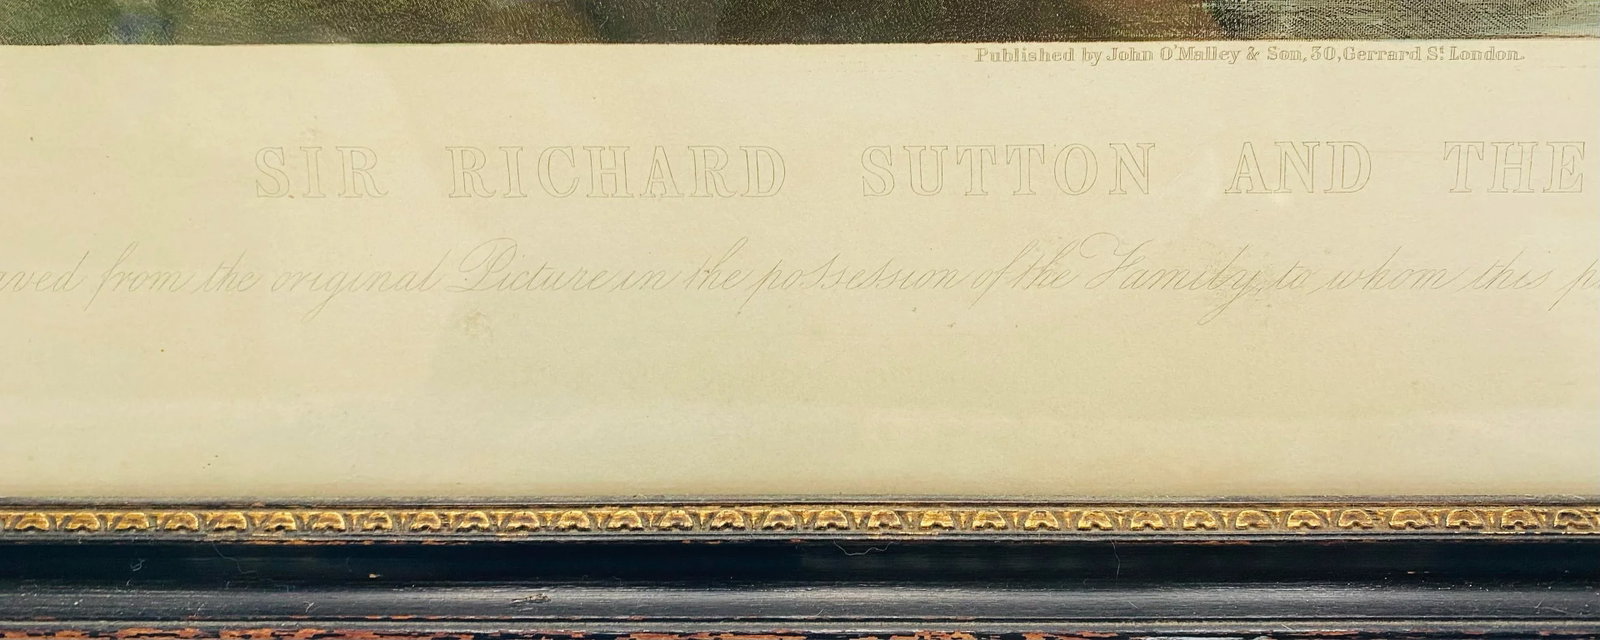 Published by John O'Malley & Son, 30, Gerrard St. London.
SIR RICHARD SUTTON AND THE
aved from the original Picture in the possession of the Family, to whom this p